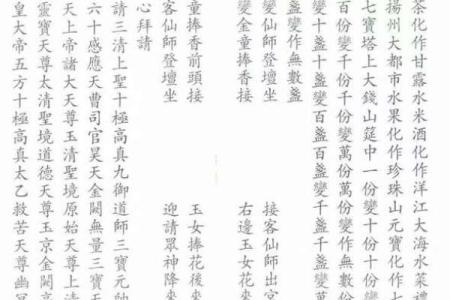 茶化作甘露水米酒化作洋江大海水菜禮
揚州大都市水果化作珍珠山元寶化作
七寶塔上大錢山筵中一份變十份十份
百份變千份千份變萬份萬份變作無數
變十盞十盞變百盞百盞變千盞千盞變萬
盞變作無數盞
變仙師登壇坐 接客仙師出宮
變金童捧香接 右邊玉女花來
童捧香前頭接 玉女捧花後來
客仙師登壇坐 迎請眾神降來
心拜請
請三清上聖十極高真九御道師三寶元帥
六十感應天曹司官昊天金闕無量三寶
天上帝諸大天尊玉清聖境原始天尊上清
靈寶天尊太清聖境道德天尊玉京金闕高
皇大帝五方十極高真太乙救苦天尊幽冥